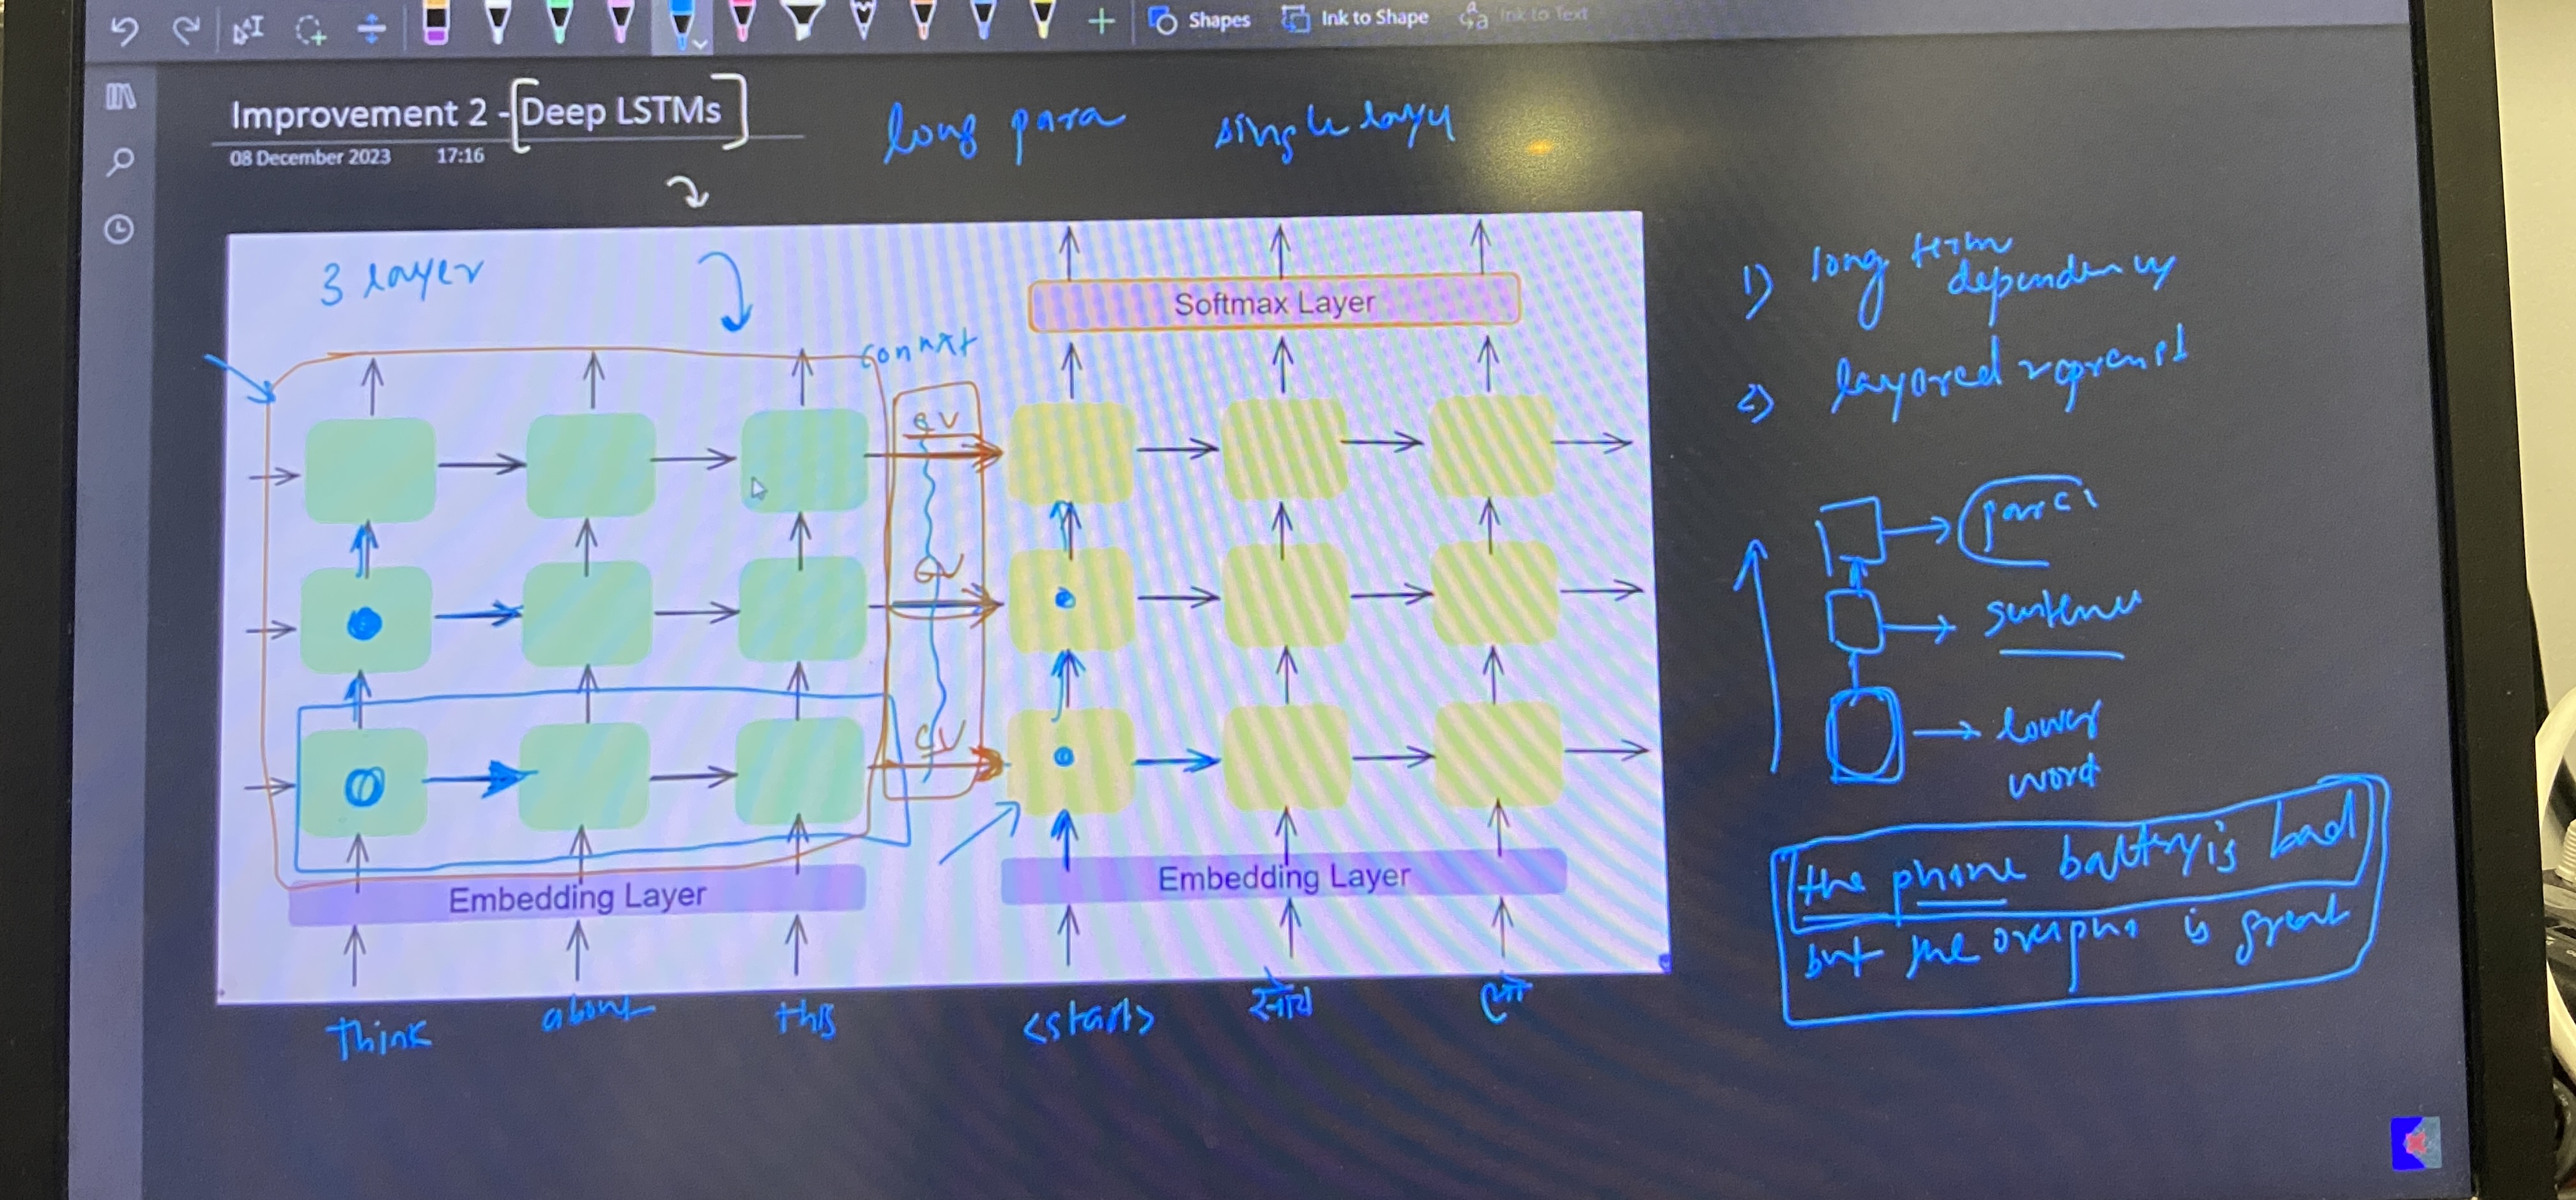 Shapes
Ink to Shape
Ink to Text
Improvement 2 - [Deep LSTMs]
08 December 2023 17:16
long para single layer
3 layer
Softmax Layer
context
CV
CV
CV
Embedding Layer
Embedding Layer
think about this <start> सोच लो
1) long term
dependency
2) layered represent
para
sentence
lower
word
the phone battery is bad
but the is great